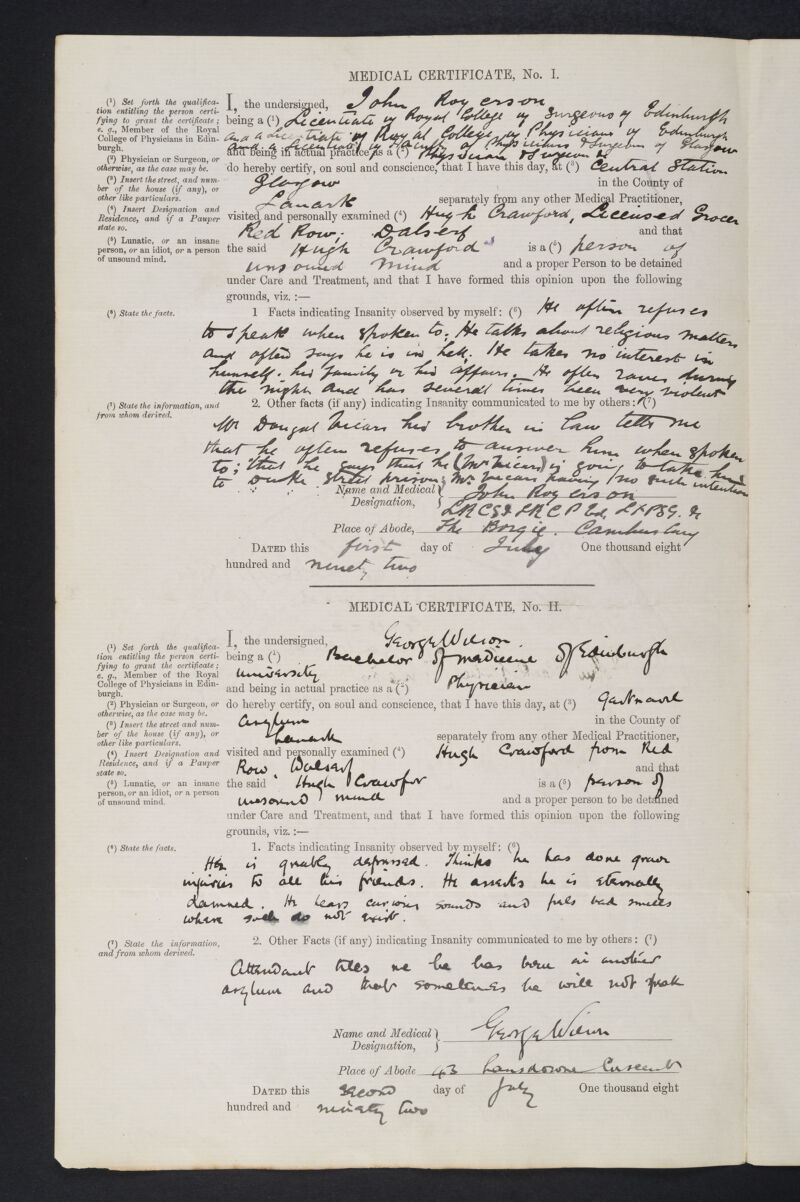 MEDICAL CERTIFICATE, No. I.
(1) Set forth the qualifica-
tion entitling the person certi-
fying to grant the certificate;
e. g., Member of the Royal
College of Physicians in Edin-
burgh.
(2) Physician or Surgeon, or
otherwise, as the case may be.
(3) Insert the street, and num-
ber of the house (if any), or
other like particulars.
(4) Insert Designation and
Residence, and if a Pauper
state so.
(5) Lunatic, or an insane
person, or an idiot, or a person
of unsound mind.
I, the undersigned, John Rogerson
being a (1) Licentiate of Royal College of Surgeons of Edinburgh
and a Licentiate of Royal College of Physicians of Edinburgh
and a Licentiate of Faculty of Physicians & Surgeons of Glasgow
and being in actual practice as a (2) Physician & Surgeon
do hereby certify, on soul and conscience, that I have this day, at (3) Central Station
Glasgow in the County of
Lanark separately from any other Medical Practitioner,
visited and personally examined (4) Hugh Crawford, Licensed Grocer
Red Row, Dalserf and that
the said Hugh Crawford is a (5) person of
unsound mind and a proper Person to be detained
under Care and Treatment, and that I have formed this opinion upon the following
grounds, viz. :—
(6) State the facts.
1 Facts indicating Insanity observed by myself: (6) He often refuses
to speak when spoken to. He talks about religious matters
and often says he is in hell. He takes no interest in
himself, his family or his affairs. He often raves during
the night and has several times been very violent
(7) State the information, and
from whom derived.
2. Other facts (if any) indicating Insanity communicated to me by others: (7)
Mr Dougal his brother in law tells me
that he often refuses to answer him when spoken
to; that he says that he (Mr ) is going to take him
to Duke Street prison, Mr having no such intention
Name and Medical Designation, John Rogerson
LRCSE LRCP Ed. LFPSG. &
Place of Abode, The Borgie. Cambuslang
DATED this first day of July One thousand eight
hundred and ninety two
MEDICAL CERTIFICATE, No. II.
(1) Set forth the qualifica-
tion entitling the person certi-
fying to grant the certificate;
e. g., Member of the Royal
College of Physicians in Edin-
burgh.
(2) Physician or Surgeon, or
otherwise, as the case may be.
(3) Insert the street and num-
ber of the house (if any), or
other like particulars.
(4) Insert Designation and
Residence, and if a Pauper
state so.
(5) Lunatic, or an insane
person, or an idiot, or a person
of unsound mind.
I, the undersigned, George Wilson
being a (1) Bachelor of medicine of Edinburgh
university
and being in actual practice as a (2) Physician
do hereby certify, on soul and conscience, that I have this day, at (3) Gartnavel
asylum in the County of
Lanark separately from any other Medical Practitioner,
visited and personally examined (4) Hugh Crawford from Red
Row, Dalserf and that
the said Hugh Crawfor is a (5) person of
unsound mind and a proper person to be detained
under Care and Treatment, and that I have formed this opinion upon the following
grounds, viz. :—
(6) State the facts.
1. Facts indicating Insanity observed by myself: (6)
He is greatly depressed. Thinks he has done grave
injuries to all his friends. He asserts he is eternally
damned. He hears curious sounds and feels bad smells
where such do not exist.
(7) State the information,
and from whom derived.
2. Other Facts (if any) indicating Insanity communicated to me by others: (7)
Attendant tells me he has been in another
asylum and that sometimes he will not speak
Name and Medical Designation, George Wilson
Place of Abode 43 Lansdowne Crescent
DATED this second day of July One thousand eight
hundred and ninety two